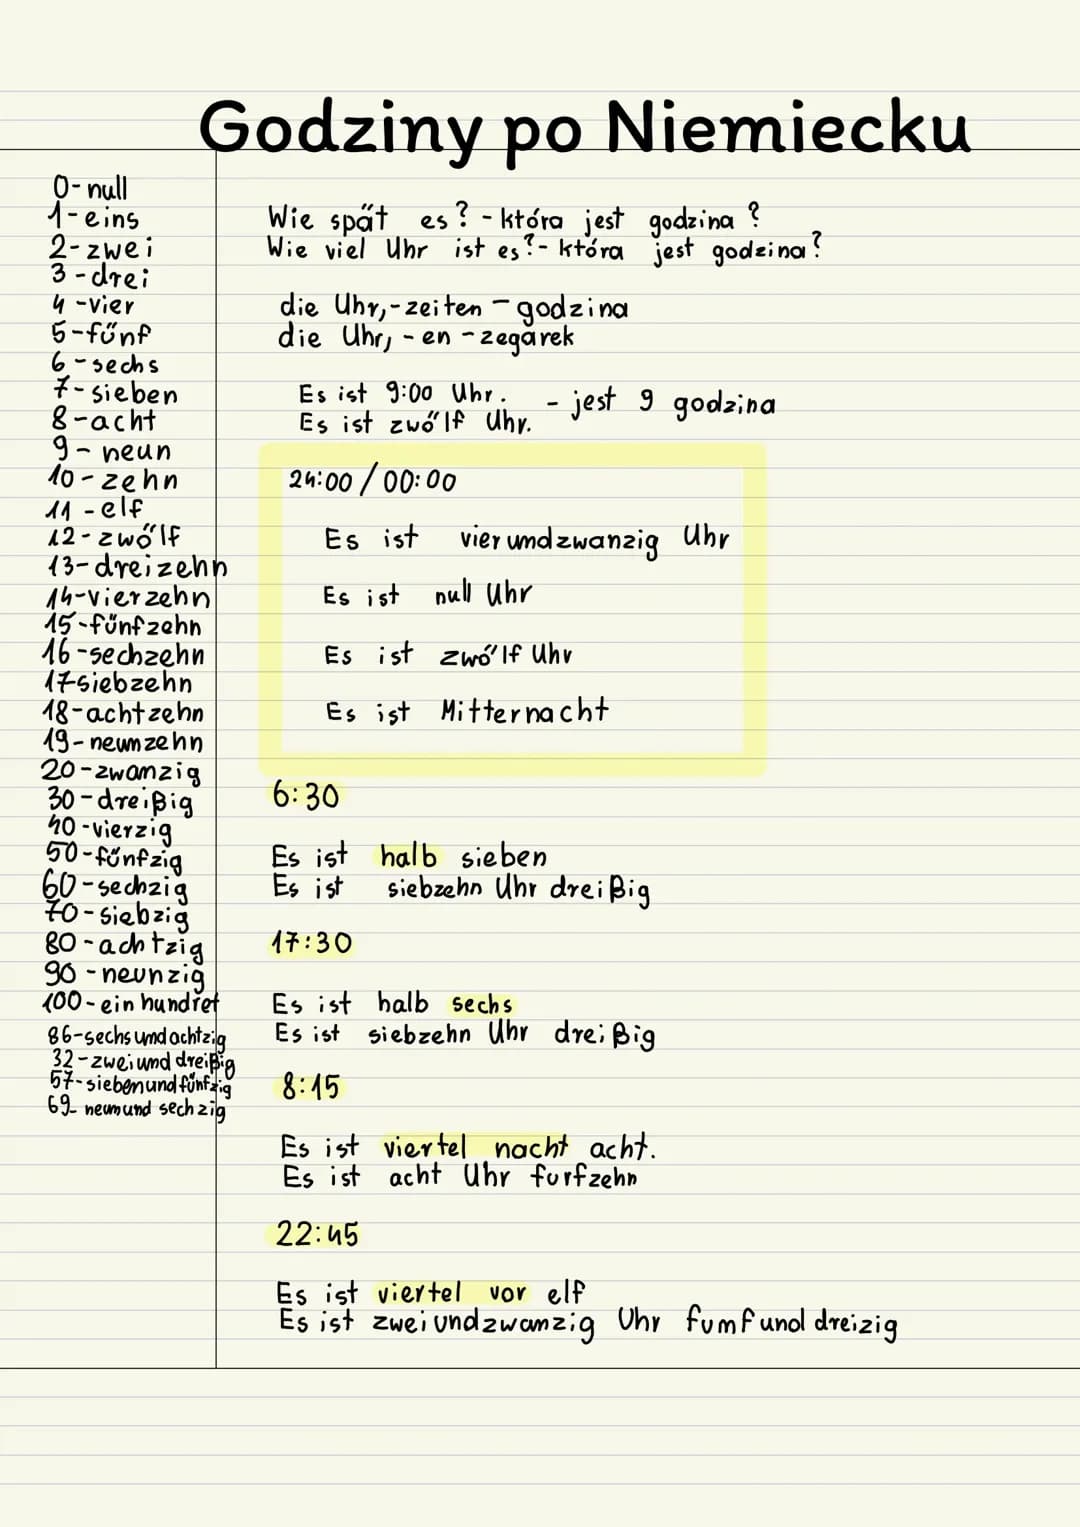 Godziny po Niemiecku
0-null
1-eins
2-zwei
3-drei
4-vier
5-fünf
6-sechs
7-sieben
8-acht
9-neun
10-zehn
11-elf
12-zwölf
13-dreizehn
14-vierzehn
15-fünfzehn
16-sechzehn
17siebzehn
18-achtzehn
19-neunzehn
20-zwanzig
30-dreißig
40-vierzig
50-fünfzig
60-sechzig
70-siebzig
80-achtzig
90-neunzig
100-ein hundret
86-sechs und achtzig
32-zwei und dreißig
57-siebenund fünfzig
69- neunund sechzig
Wie spät es? - która jest godzina?
Wie viel Uhr ist es?- która jest godzina?
die Uhr,-zeiten - godzina
die Uhr, -en - zegarek
Es ist 9:00 Uhr. - jest 9 godzina
Es ist zwölf Uhr.
24:00 / 00:00
Es ist vierundzwanzig Uhr
Es ist null Uhr
Es ist zwölf Uhr
Es ist Mitternacht
6:30
Es ist halb sieben
Es ist siebzehn Uhr dreißig
17:30
Es ist halb sechs
Es ist siebzehn Uhr dreißig
8:15
Es ist viertel nacht acht.
Es ist acht Uhr furfzehn
22:45
Es ist viertel vor elf
Es ist zweiundzwanzig Uhr fumfund dreizig